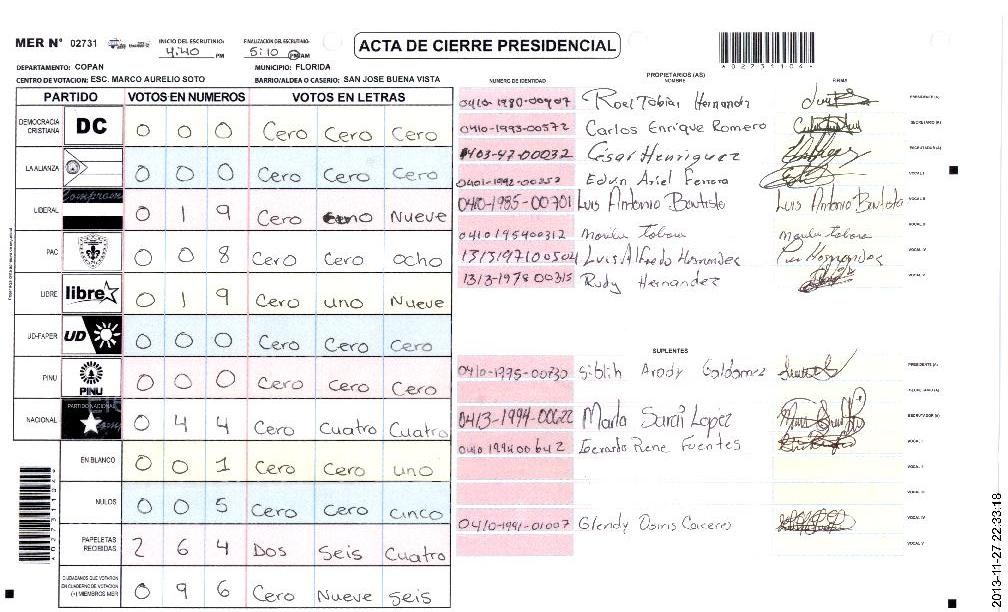 MER N° 02731 INICIO DEL ESCRUTINIO: 4:40 PM FINALIZACION DEL ESCRUTINIO: 5:10 PM AM ACTA DE CIERRE PRESIDENCIAL
DEPARTAMENTO: COPAN MUNICIPIO: FLORIDA
CENTRO DE VOTACION: ESC. MARCO AURELIO SOTO BARRIO/ALDEA O CASERIO: SAN JOSE BUENA VISTA
PARTIDO VOTOS EN NUMEROS VOTOS EN LETRAS
DEMOCRACIA CRISTIANA DC 0 0 0 Cero Cero Cero
LA ALIANZA 0 0 0 Cero Cero Cero
LIBERAL 0 1 9 Cero uno Nueve
PAC 0 0 8 Cero Cero ocho
LIBRE libre 0 1 9 Cero uno Nueve
UD-FAPER UD 0 0 0 Cero Cero Cero
PINU PINU 0 0 0 Cero Cero Cero
NACIONAL PARTIDO NACIONAL 0 4 4 Cero Cuatro Cuatro
EN BLANCO 0 0 1 Cero Cero uno
NULOS 0 0 5 Cero Cero cinco
PAPELETAS RECIBIDAS 2 6 4 Dos Seis Cuatro
CIUDADANOS QUE VOTARON EN CUADERNO DE VOTACION (+) MIEMBROS MER 0 9 6 Cero Nueve seis
PROPIETARIOS (AS)
NUMERO DE IDENTIDAD NOMBRE FIRMA
0410-1980-00907 Roel Tobias Hernandz PRESIDENTE (A)
0410-1993-00572 Carlos Enrique Romero SECRETARIO (A)
0403-47-00032 César Henriquez ESCRUTADOR (A)
0401-1992-00252 Edvin Ariel Ferrera VOCAL I
0410-1985-00701 Luis Antonio Bautista Luis Antonio Bautista VOCAL II
0410195400312 Marila Tabora Marila Tabora
1313197100502 Luis Alfredo Hernandez Luis Hernandez VOCAL IV
1313-1978 00315 Rudy Hernandez VOCAL V
SUPLENTES
0410-1995-00730 Siblih Arody Galdamez PRESIDENTE (A)
SECRETARIO (A)
0413-1994-00622 Marla Sarai Lopez ESCRUTADOR (A)
0410 1994 00642 Gerardo Rene Fuentes VOCAL I
VOCAL II
VOCAL III
0410-1991-01007 Glendy Osiris Caceres VOCAL IV
VOCAL V
2013-11-27 22:33:18